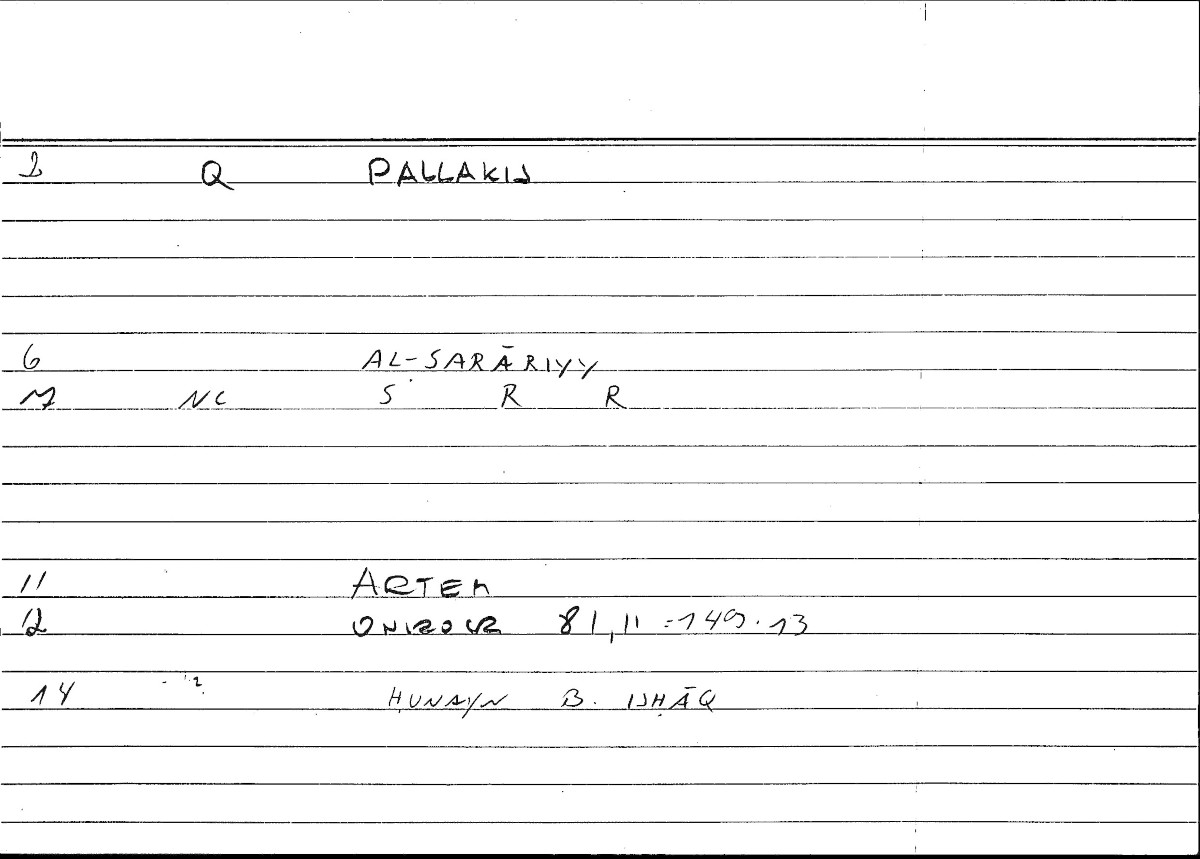 2 Q PALLAKIS
6 AL-SARĀRIYY
7 NC S R R
11 ARTEM
12 ONIROCR 81,11 = 149.13
14 ḤUNAYN B. ISḤĀQ